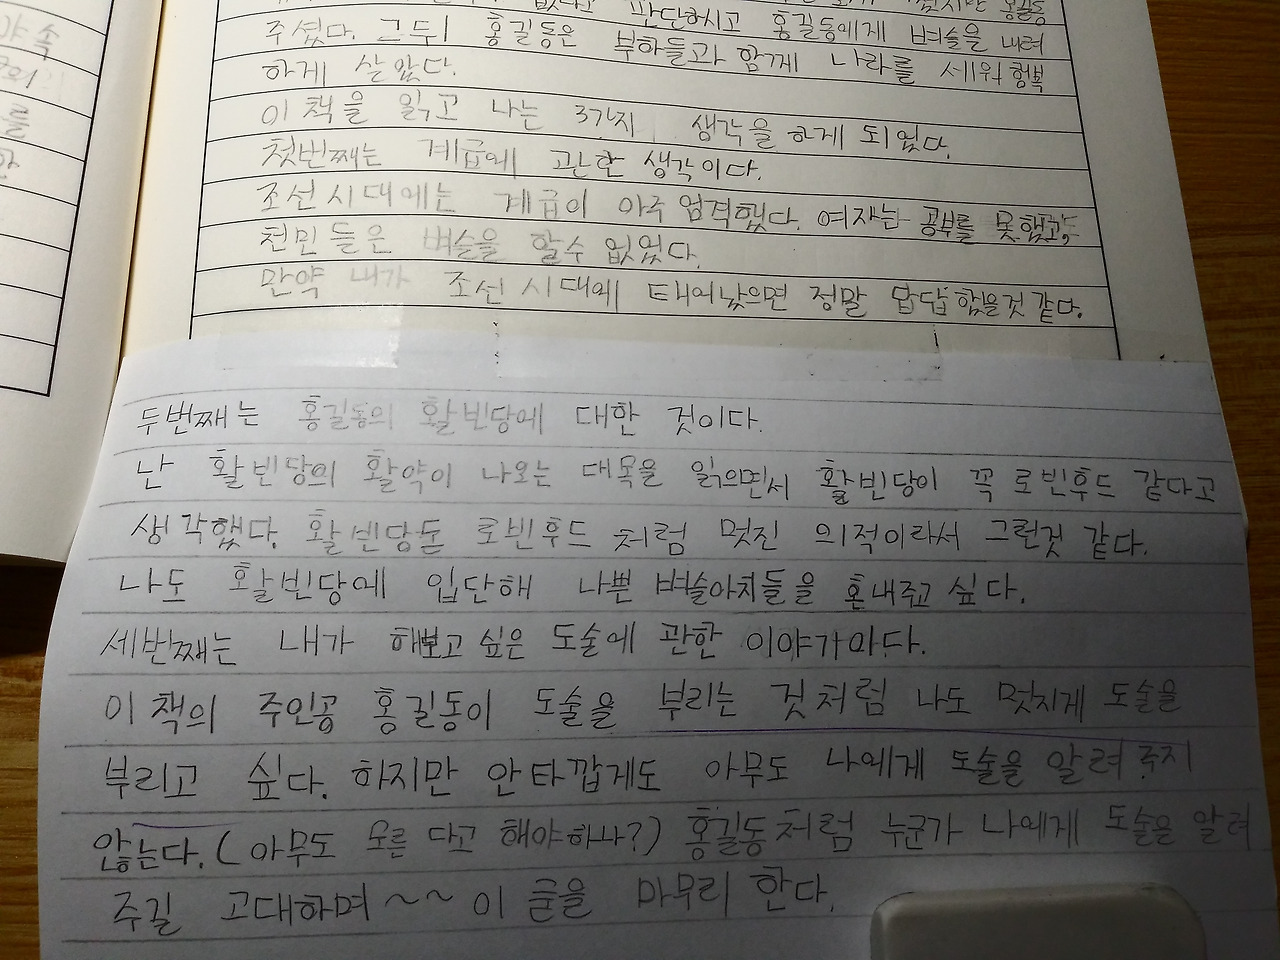 없다고 판단하시고 홍길동에게 벼슬을 내려
주셨다. 그 뒤 홍길동은 부하들과 함께 나라를 세워 행복
하게 살았다.
이 책을 읽고 나는 3가지 생각을 하게 되었다.
첫번째는 계급에 관한 생각이다.
조선시대에는 계급이 아주 엄격했다. 여자는 공부를 못했고,
천민들은 벼슬을 할수 없었다.
만약 내가 조선시대에 태어났으면 정말 답답했을것 같다.
두번째는 홍길동의 활빈당에 대한 것이다.
난 활빈당의 활약이 나오는 대목을 읽으면서 활빈당이 꼭 로빈후드 같다고
생각했다. 활빈당도 로빈후드 처럼 멋진 의적이라서 그런것 같다.
나도 활빈당에 입단해 나쁜 벼슬아치들을 혼내주고 싶다.
세번째는 내가 해보고 싶은 도술에 관한 이야기이다.
이 책의 주인공 홍길동이 도술을 부리는 것처럼 나도 멋지게 도술을
부리고 싶다. 하지만 안타깝게도 아무도 나에게 도술을 알려 주지
않는다. (아무도 모른 다고 해야하나?) 홍길동처럼 누군가 나에게 도술을 알려
주길 고대하며~~ 이 글을 마무리 한다.